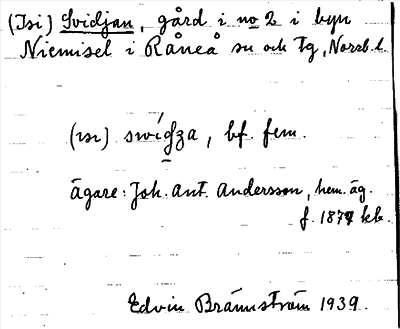 (Isi) Svidjan, gård i no 2 i byn
Niemisel i Råneå sn och Tg, Norrb. l.
(ɪsɪ) swíʤza, bf. fem.
Ägare: Joh. Ant. Andersson, hem. äg.
f. 1879 kb.
Edvin Brännström 1939.